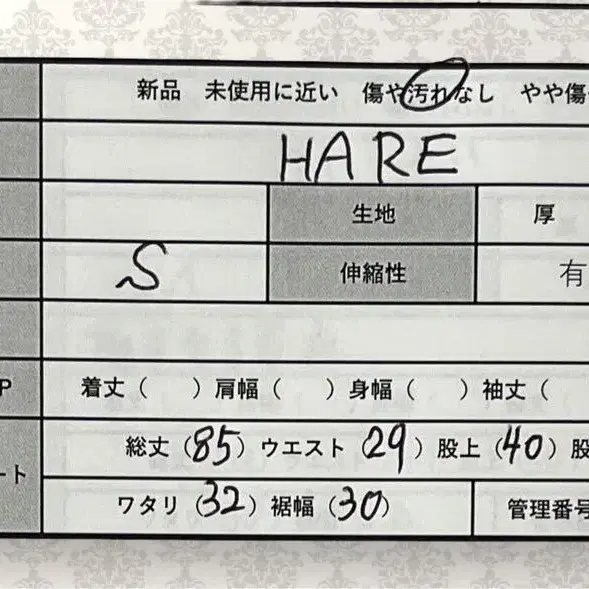 新品 未使用に近い 傷や汚れなし やや傷
HARE
生地 厚
S 伸縮性 有
P 着丈( )肩幅( )身幅( )袖丈(
総丈(85)ウエスト(29)股上(40)股
ート
ワタリ(32)裾幅(30) 管理番号